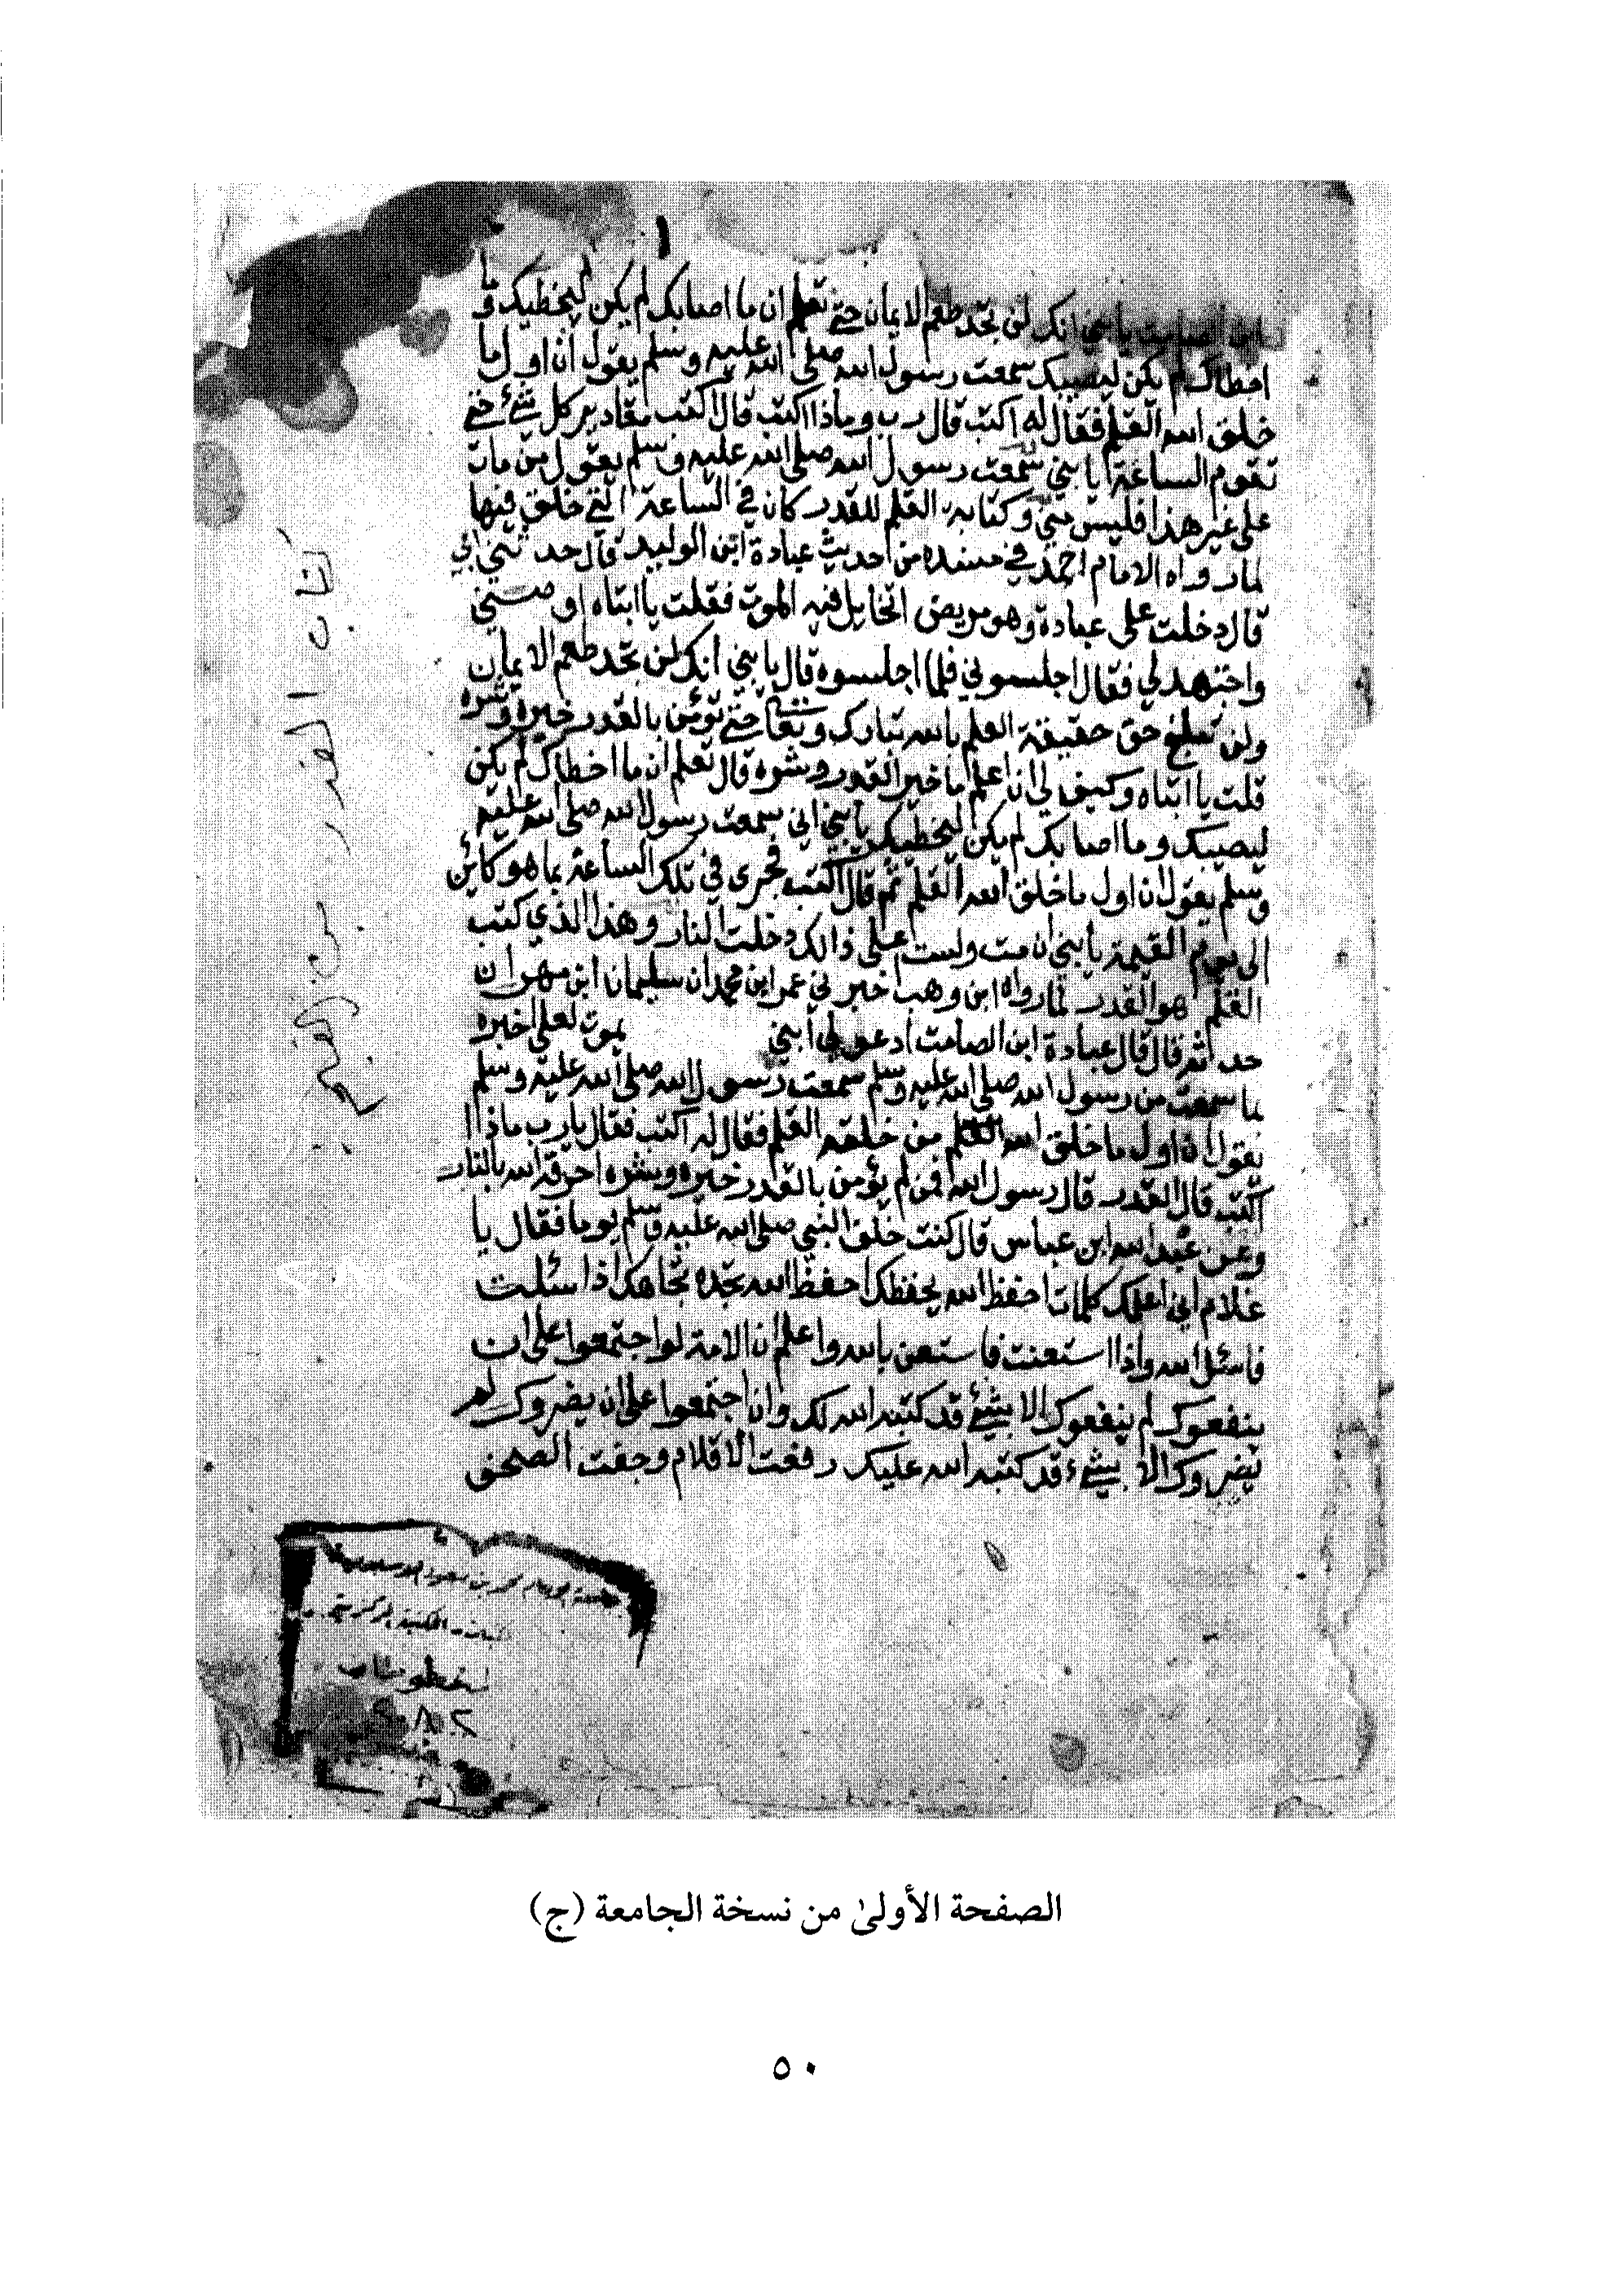 ١
ابن الصامت يا بني انك لن تجد طعم الايمان حتى تعلم ان ما اصابك لم يكن ليخطيك وما
اخطاك لم يكن ليصيبك سمعت رسول الله صلى الله عليه وسلم يقول ان اول ما
خلق الله القلم فقال له اكتب قال رب وماذا اكتب قال اكتب مقادير كل شئ حتى
تقوم الساعة يا بني سمعت رسول الله صلى الله عليه وسلم يقول من مات
على غير هذا فليس مني وكتابة القلم للقدر كان في الساعة التي خلق فيها
لما رواه الامام احمد في مسنده من احديث عبادة ابن الوليد قال حدثني ابي
قال دخلت على عبادة وهو مريض اتخايل فيه الموت فقلت يا ابتاه اوصيني
واجتهد لي فقال اجلسوني فلما اجلسوه قال يا بني انك لن تجد طعم الايمان
ولن تبلغ حق حقيقة العلم بالله تبارك وتعا حتى تؤمن بالقدر خيره وشره
قلت يا ابتاه وكيف لي ان اعلم ما خير القدر وشره قال تعلم ان ما اخطاك لم يكن
ليصيبك وما اصابك لم يكن ليخطيك يا بني اني سمعت رسول الله صلى الله عليه
وسلم يقول ان اول ما خلق الله القلم ثم قال اكتب فجرى في تلك الساعة بما هو كائن
الى يوم القيمة يا بني ان مت ولست على ذالك دخلت النار وهذا الذي كتب
القلم هو القدر لما رواه ابن وهب اخبرني عمر ابن محمد ان سليمان ابن مهران
حدثه قال قال عبادة ابن الصامت ادعو لي ابني بموت لعلي اخبره
بما سمعت من رسول الله صلى الله عليه وسلم سمعت رسول الله صلى الله عليه وسلم
يقول ان اول ما خلق الله القلم من خلقه القلم فقال له اكتب فقال يا رب ماذا ا
اكتب قال القدر قال رسول الله فمن لم يؤمن بالقدر خيره وشره احرقه الله بالنار
وعن عبد الله ابن عباس قال كنت خلف النبي صلى الله عليه وسلم يوما فقال يا
غلام اني اعلمك كلمات احفظ الله يحفظك احفظ الله تجده تجاهك اذا سئلت
فاسئل الله واذا استعنت فاستعن بالله واعلم ان الامة لو اجتمعوا على ان
ينفعوك لم ينفعوك الا بشئ قد كتبه الله لك وان اجتمعوا على ان يضروك لم
يضروك الا بشئ قد كتبه الله عليك رفعت الاقلام وجفت الصحف
كتاب القدر
جامعة الامام محمد بن سعود الاسلامية
المكتبة المركزية
مخطوطات
الصفحة الأولىٰ من نسخة الجامعة (ج)
٥٠